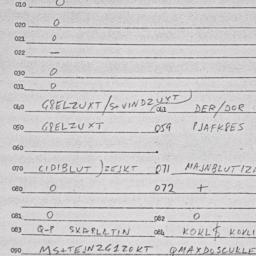 010 0
020 0
021 0
022 —
030 0
031 0
040 GBELZUXT/SOVINDZUXT 041 DER/DOR
050 GBELZUXT 059 PJAFKBES
060
070 CIDIBLUT)ZEJKT 071 MAJNBLUTIZI
080 0 072 +
081 0 082 0
083 Q-P SKAPLATIN 084 KOKLF KOKLI
090 MS+TEJNZGIZOKT QMAXDOSCUKLE